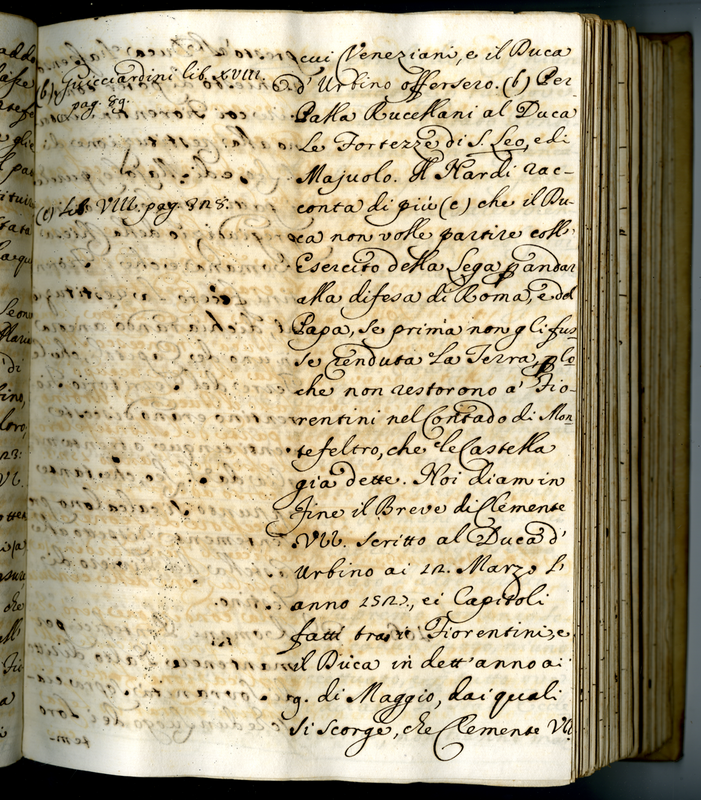 (b) Guicciardini lib. XVIII.
pag. 89.
(c) Lib. VIII. pag. 325.
cui Veneziani, e il Duca
d'Urbino offersero. (b) Per
Palla Rucellani al Duca
Le Fortezze di S. Leo, e di
Majuolo. Il Nardi rac-
conta di più (c) che il Du-
ca non volle partire coll'
Esercito della Lega p andar
alla difesa di Roma, e del
Papa, se prima non gli fus
se renduta la Terra, p le
che non restorono a' Fio-
rentini nel Contado di Mon
tefeltro, che le Castella
gia dette. Noi diam in
fine il Breve di Clemente
VII. scritto al Duca d'
Urbino ai 12. Marzo l'
anno 1527., ei Capitoli
fatti tra i Fiorentini, e
il Duca in dett'anno ai
9. di Maggio, dai quali
si scorge, che Clemente VII